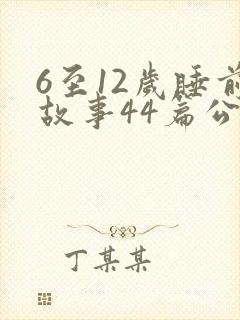 6至12岁睡前
故事44篇公
丁某某